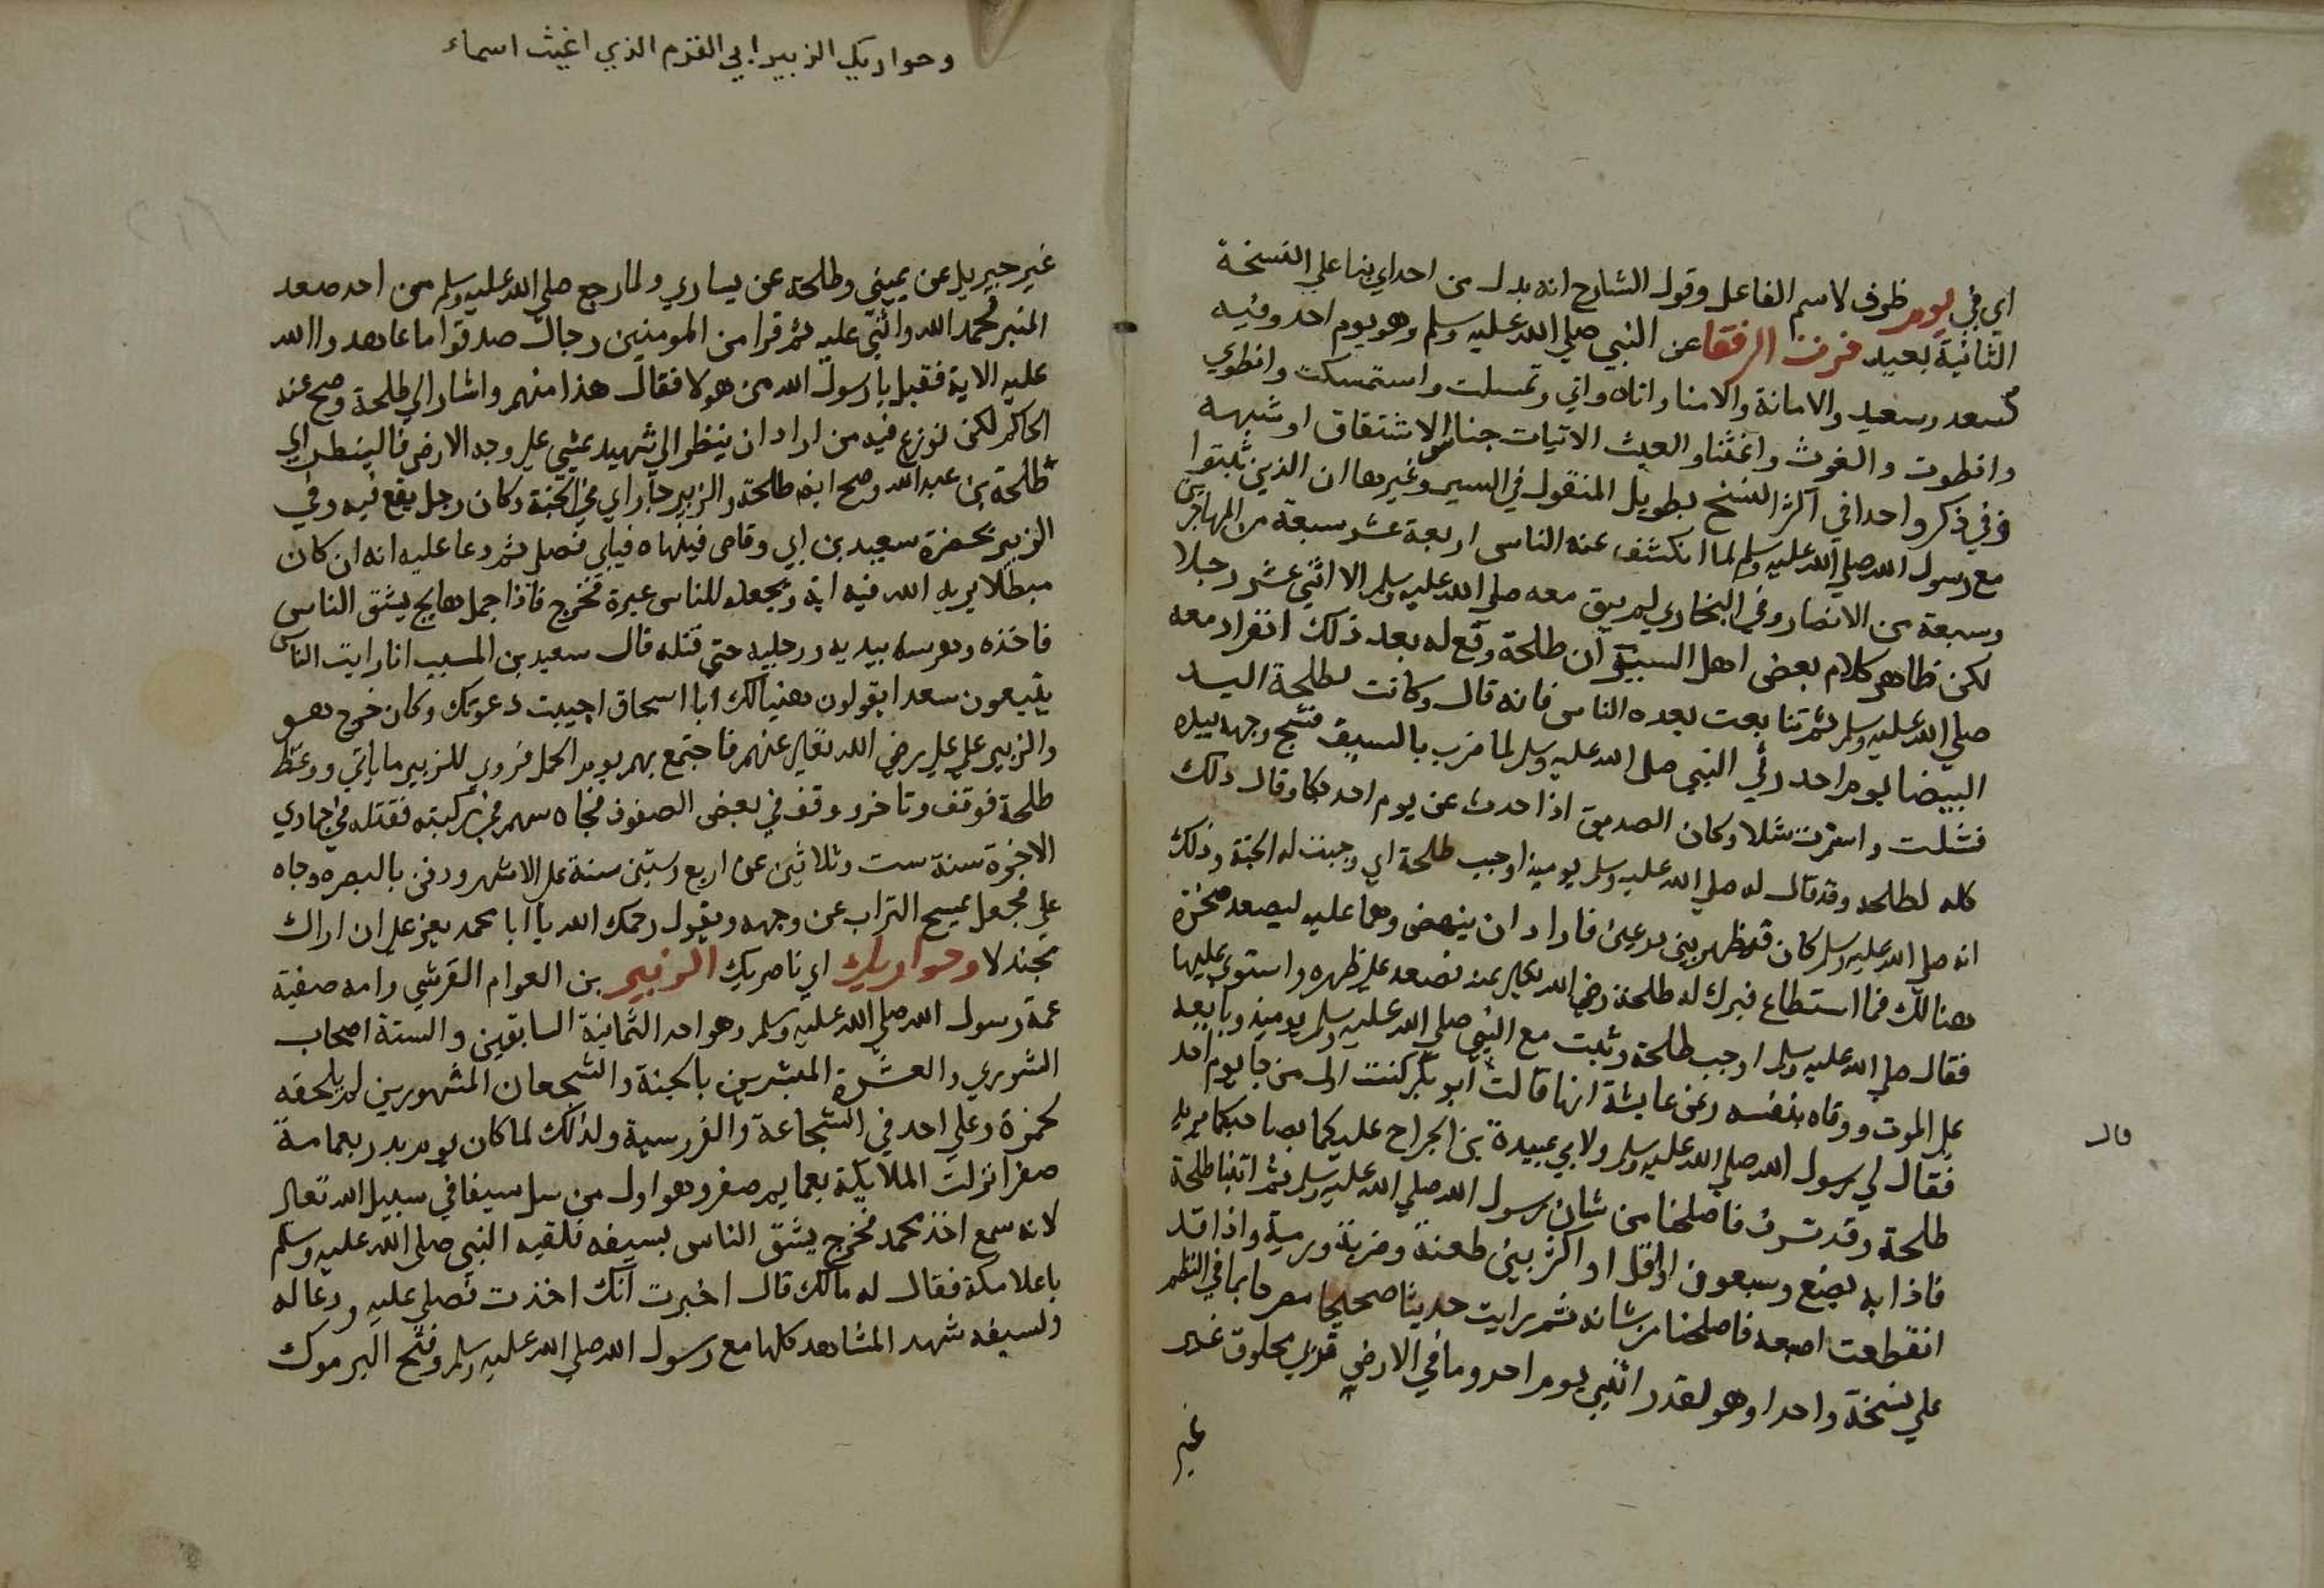 اي في يوم ظرف لاسم الفاعل وقول الشارح انه بدل من احداي بنا علي النسخة
الثانية بعيد فرت الرفقا عن النبي صلي الله عليه وسلم وهو يوم احد وفيه
كسعد وسعيد والامانة والامنا واتاه واتي وتمسلت واستمسكت وانطوي
وانطوت والغوث واغثنا والغيث الاتيات جناس الاشتقاق او شبهه
وفي ذكر واحدا في اكثر النسخ بطويل المنقول في السير وغيرها ان الذين ثبتوا
مع رسول الله صلي الله عليه وسلم لما انكشف عنه الناس اربعة عشر سبعة من المهاجرين
وسبعة من الانصار وفي البخاري لم يبق معه صلي الله عليه وسلم الا اثني عشر رجلا
لكن ظاهر كلام بعض اهل السير ان طلحة وقع له بعد ذلك انفراد معه
صلي الله عليه وسلم ثم تتابعت بعده الناس فانه قال وكانت لطلحة اليد
البيضا يوم احد وقي النبي صلي الله عليه وسلم لما ضرب بالسيف فشج وجهه بيده
فشلت واستمرت شلا وكان الصديق اذا حدث عن يوم احد بكا وقال ذلك
كله لطلحة وقد قال له صلي الله عليه وسلم يوميذ اوجب طلحة اي وجبت له الجنة وذلك
انه صلي الله عليه وسلم كان قد ظهر بين درعين فاراد ان ينهض وهما عليه ليصعد صخرة
هنالك فما استطاع فبرك له طلحة رضي الله تعالي عنه فصعد علي ظهره واستوي عليها
فقال صلي الله عليه وسلم اوجب طلحة وثبت مع النبي صلي الله عليه وسلم يوميذ وبايعه
علي الموت ووقاه بنفسه وعن عايشة انها قالت ابو بكر كنت اول من جا يوم احد
فقال لي رسول الله صلي الله عليه وسلم ولابي عبيدة بن الجراح عليكما بصاحبكما يريد
طلحة وقد نزف فاصلحنا من شان رسول الله صلي الله عليه وسلم ثم اتينا طلحة
فاذا به بضع وسبعون او اقل او اكثر بين طعنة وضربة ورمية واذا قد
انقطعت اصبعه فاصلحنا من شانه ثم رايت حديثا صحيحا مصرحا بما في النظم
علي نسخة واحدا وهو لقد رايتني يوم احد وما في الارض قربي مخلوق غير
غير
قال
وحواريك الزبير ابي القرم الذي اغيث اسماء
غير جبريل عن يميني وطلحة عن يساري ولما رجع صلي الله عليه وسلم من احد صعد
المنبر فحمد الله واثني عليه ثم قرا من المومنين رجال صدقوا ما عاهدوا الله
عليه الاية فقيل يا رسول الله من هولا فقال هذا منهم واشار الي طلحة وصح عند
الحاكم لكن نوزع فيه من اراد ان ينظر الي شهيد يمشي علي وجه الارض فالينطر الي
طلحة بن عبد الله وصح ايضا طلحة والزبير جاراي في الجنة وكان رجل يقع فيه وفي
الزبير بحضرة سعيد بن ابي وقاص فينهاه فيابي فصلي ثم دعا عليه انه ان كان
مبطلا يريه الله فيه اية ويجعله للناس عبرة فخرج فاذا جمل هايج يشق الناس
فاخذه وهرسه بيديه ورجليه حتي قتله قال سعيد بن المسيب انا رايت الناس
يتبعون سعدا يقولون هنيا لك ابا اسحاق اجيبت دعوتك وكان خرج هو
والزبير علي علي رضي الله تعالي عنهم فاجتمع بهم يوم الجمل فروي للزبير ما ياتي ووعظ
طلحة فوقف وتاخر ووقف في بعض الصفوف فجاه سهم في ركبته فقتله في جمادي
الاخرة سنة ست وثلاثين عن اربع وستين سنة علي الاشهر ودفن بالبصره وجاه
علي فجعل يمسح التراب عن وجهه ويقول رحمك الله يا ابا محمد يعز علي ان اراك
مجندلا وحواريك اي ناصريك الزبير بن العوام القرشي وامه صفية
عمة رسول الله صلي الله عليه وسلم وهو احد الثمانية السابقين والستة اصحاب
الشوري والعشرة المبشرين بالجنة والشجعان المشهورين لم يلحقه
كحمزة وعلي احد في الشجاعة والفروسية ولذلك لما كان يوم بدر بعمامة
صفرا نزلت الملايكة بعمايم صفر وهو اول من سل سيفا في سبيل الله تعالي
لانه سمع اخذ محمد فخرج يشق الناس بسيفه فلقيه النبي صلي الله عليه وسلم
باعلا مكة فقال له مالك قال اخبرت انك اخذت فصلي عليه ودعا له
ولسيفه شهد المشاهد كلها مع رسول الله صلي الله عليه وسلم وفتح اليرموك